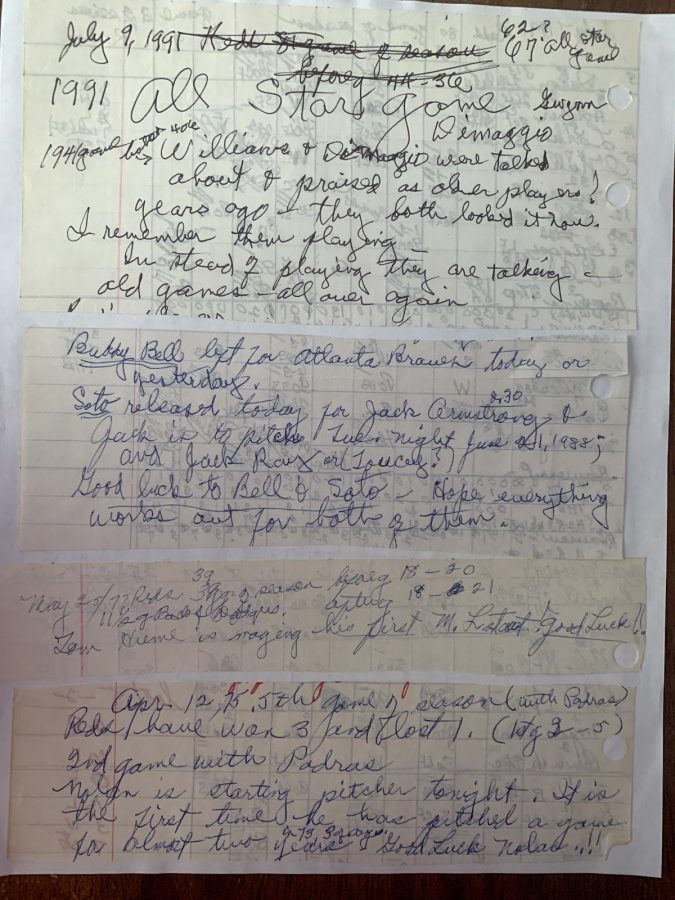 July 9, 1991 Reds 81 game of season 62? 67 All Star Game
before 44-36
1991 All Stars Game Gwynn
Dimaggio
1941 game Williams & Dimaggio were talked
about & praised as other players!
years ago - they both looked it now.
I remember them playing -
In stead of playing they are talking -
old games - all over again
Buddy Bell left for Atlanta Braves today or
yesterday.
Soto released today for Jack Armstrong &
Jack is to pitch Tue. night June 21, 1988;
and Jack
Good luck to Bell & Soto - Hope everything
works out for both of them.
39
May 23/77 Reds game of season before 18-20
after 18-21
Tom Hume is making his first M. L start! Good Luck!!
Apr 12, 75, 5th game of season (with Padras)
Reds have won 3 and lost 1. (1st g 2-5)
2nd game with Padras
Nolan is starting pitcher tonight. It is
the first time he has pitched a game
for almost two years Good Luck Nolan!!!